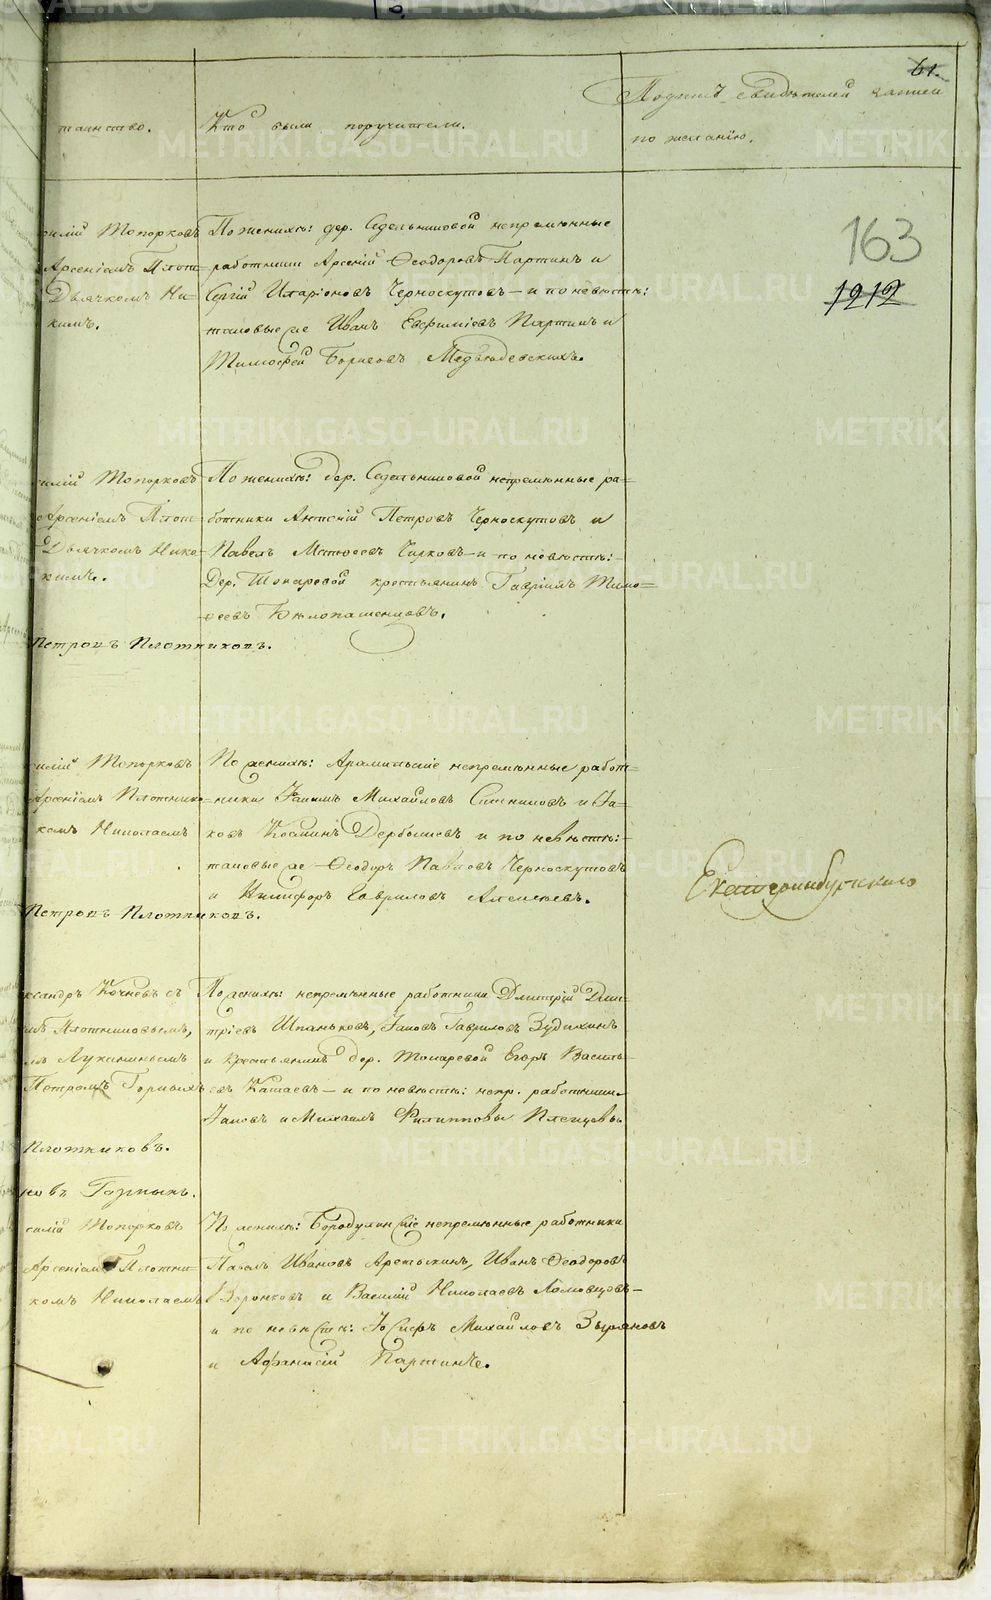 61.
таинство.
Кто были поручители.
Подпись свидѣтелей записи
по желанію.
163
1212
силій Топорковъ
Арсеніемъ Плот=
Дьячкомъ Ни=
По женихѣ: дер. Седельниковой непремѣнные
работники Арсеній Ѳеодоровъ Партинъ и
Сергій Иларіоновъ Черноскутовъ – и по невѣстѣ:
таковые же Иванъ Евфиміевъ Партинъ и
Тимоѳей Борисовъ
силій Топорковъ
Арсеніемъ Плот=
Дьячкомъ Нико=
Петровъ Плотниковъ.
По женихѣ: дер. Седельниковой непремѣнные ра=
ботники Петровъ Черноскутовъ и
Павелъ Матѳеевъ Чирковъ – и по невѣстѣ:
Дер. Токаревой крестьянинъ Гавріилъ Тимо=
ѳеевъ Бѣлопашенцовъ.
силій Топорковъ
Арсеніемъ Плотнико=
комъ Николаемъ
Петровъ Плотниковъ.
По женихѣ: Арамильскіе непремѣнные работ=
ники Михайловъ Ситниковъ и Іа=
ковъ Козминъ Дербышевъ и по невѣстѣ:
таковые же Ѳеодоръ Павловъ Черноскутовъ
и Никифоръ Гавриловъ Алексѣевъ.
Екатеринбургскаго
ксандръ Кочневъ съ
мъ Плотниковымъ,
мъ Лукинымъ
Петромъ
Плотниковъ.
По женихѣ: непремѣнные работники Дмитрій Дми=
тріевъ Шпаньковъ, Іаковъ Гавриловъ Зудихинъ
и крестьянинъ дер. Токаревой Егоръ Василь=
евъ Катаевъ – и по невѣстѣ: непр. работники
Іаковъ и Михаилъ Филипповы
силій Топорковъ
Арсеніемъ Плотни=
комъ Николаемъ
По женихѣ: Бородулинскіе непремѣнные работники
Павелъ Ивановъ Иванъ Ѳеодоровъ
Воронковъ и Василій Николаевъ Ломовцовъ –
и по невѣстѣ: Іосифъ Михайловъ Зыряновъ
и Аѳанасій Партинъ.
METRIKI.GASO-URAL.RU